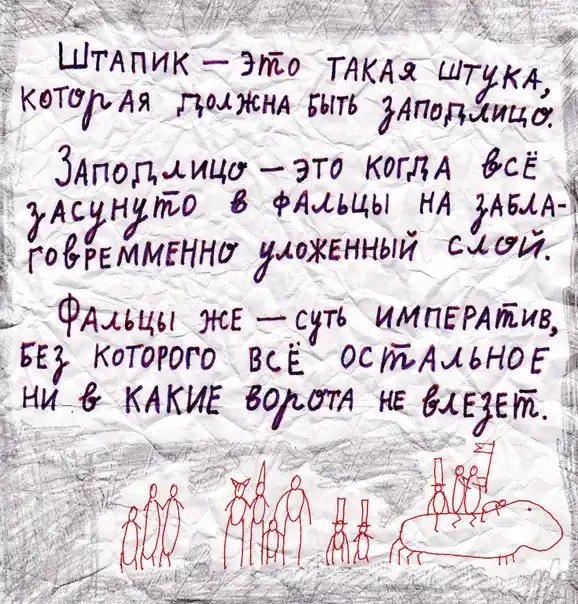 Штапик — это такая штука,
которая должна быть заподлицо.
Заподлицо — это когда всё
засунуто в фальцы на забла-
говремменно уложенный слой.
Фальцы же — суть императив,
без которого всё остальное
ни в какие ворота не влезет.